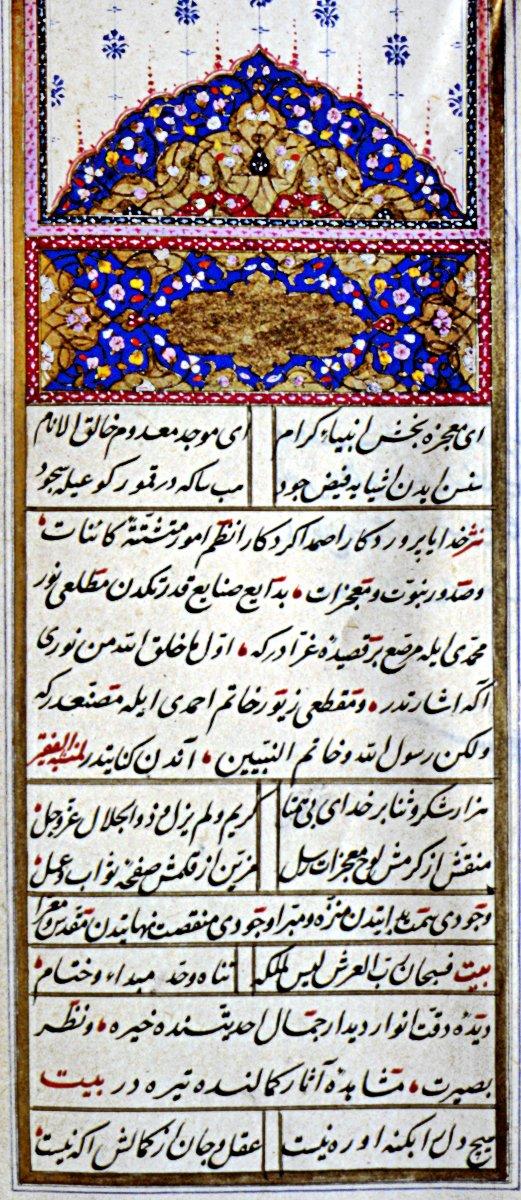 ای معجزه بخش انبیاء کرام ای موجد معدوم خالق الانام
سنسن ایدن اشیایه فیض جود
نثر خدایا پروردکارا صمدا کردکارا نظم امور متشتّتهٔ کائنات
وصدور نبوّت ومعجزات بدایع صنایع قدرتکدن مطلعی نور
محمّدی ایله مرصّع بر قصیدهٔ غرّادرکه اوّل ما خلق الله من نوری
اکه اشارتدر ومقطعی زیور خاتم احمدی ایله مصنّعدرکه
ولکن رسول الله وخاتم النبیّین آندن کنایتدر لمنشئه الفقیر
هزار شکر وثنا بر خدای بی همتا کریم ولم یزل وذو الجلال عزّوجل
منقّش از کرمش لوح معجزات رسل مزیّن از قلمش صفحهٔ ثواب وعمل
وجودی سمت بدایتدن منزّه ومبرّا وجودی منقصت نهایتدن مقدّس ومعرّا
بیت فسبحان ربّ العرش لیس لملکه تناه وحدّ مبداء وختام
دیدهٔ دقّت انوار دیدار جمال احدیتنده خیره ونظر
بصیرت مشاهدهٔ آثار کمالنده تیره در بیت
هیچ دل را بکنه او ره نیست عقل وجان از کمالش اکه نیست